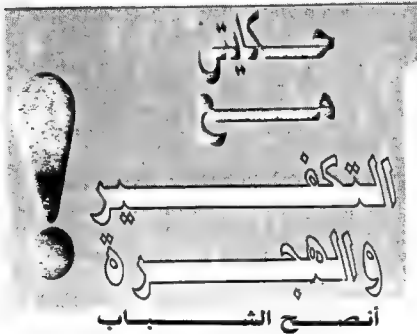 حكايتي
مع
التكفير
والهجرة !
أنصح الشباب